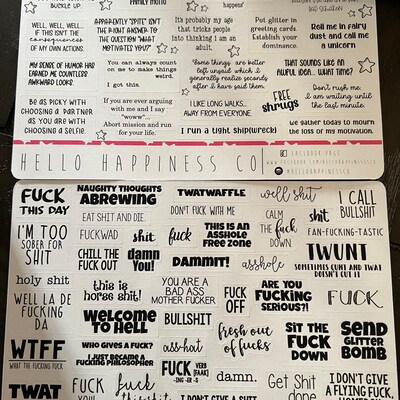 BUCKLE UP.
FAMILY MOTTO
happens'
WELL, WELL, WELL..
IF THIS ISN'T THE
consequences
OF MY OWN ACTIONS.
APPARENTLY "SPITE" ISN'T
THE RIGHT ANSWER TO
THE QUESTION "WHAT
MOTIVATES YOU?"
It's probably my age
that tricks people
into thinking I am an
adult.
Put glitter in
greeting cards.
Establish your
dominance.
Roll me in fairy
dust and call me
a unicorn
MY SENSE OF HUMOR HAS
EARNED ME COUNTLESS
AWKWARD LOOKS.
You can always count
on me to make things
weird.
I got this.
Some things are better
left unsaid which I
generally realize seconds
after I have said them.
THAT SOUNDS LIKE AN
AWFUL IDEA... WHAT TIME?
BE AS PICKY WITH
CHOOSING A PARTNER
AS YOU ARE WITH
CHOOSING A SELFIE.
If you are ever arguing
with me and I say
"woww"...
Abort mission and run
for your life.
I LIKE LONG WALKS...
AWAY FROM EVERYONE.
FREE
shrugs
Don't rush me.
I am waiting until
the last minute.
I run a tight ship(wreck)
We gather today to mourn
the loss of my motivation.
HELLO HAPPINESS CO
FACEBOOK PAGE
FUCK
THIS DAY
NAUGHTY THOUGHTS
ABREWING
TWATWAFFLE
well shit
I CALL
BULLSHIT
EAT SHIT AND DIE.
DON'T FUCK WITH ME
I'M TOO
SOBER FOR
SHIT
FUCKWAD
shit
fuck
THIS IS AN
ASSHOLE
FREE ZONE
CALM
THE fuck
DOWN
shit
FAN-FUCKING-TASTIC
CHILL THE
FUCK OUT
damn
You!
DAMMIT!
asshole
TWUNT
SOMETIMES CUNT AND TWAT
DOESN'T CUT IT
holy shit
this is
horse shit!
YOU ARE A
BAD ASS
MOTHER FUCKER
FUCK
OFF
ARE YOU
FUCKING
SERIOUS?!
FUCK
WELL LA DE
FUCKING
DA
WELCOME
TO HELL
BULLSHIT
fresh out
of fucks
SIT THE
FUCK
DOWN
SEND
GLITTER
BOMB
WTFF
WHAT THE FUCKING FUCK
WHO GIVES A FUCK?
I JUST BECAME A
FUCKING PHILOSOPHER
ass-hat
FUCK VERB
(FAAK)
-ING -ER -S
damn.
Get Shit
done
I DON'T GIVE
A FLYING FUCK,
TWAT
FUCK
YOU
fuck
this
I DON'T GIVE A SHIT